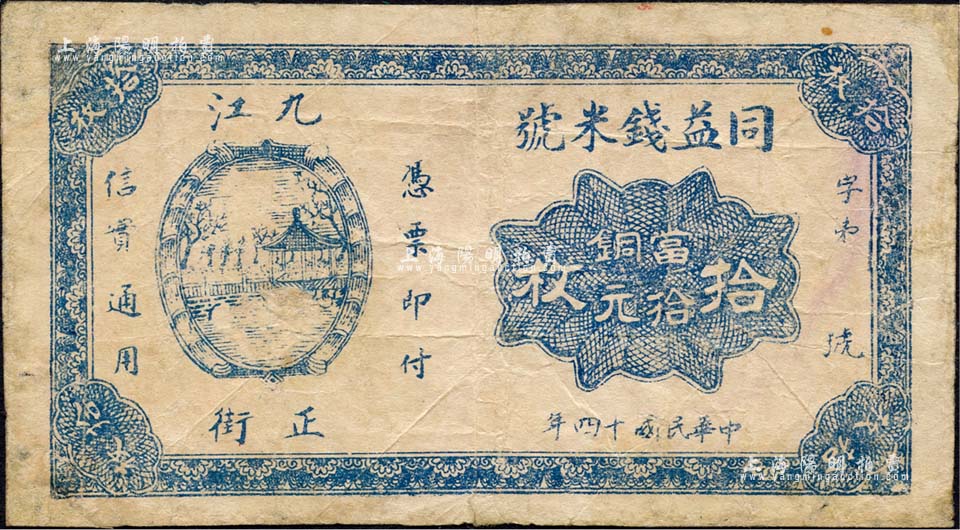 同益錢米號
字第 號
當拾銅元
拾枚
中華民國十四年
憑票即付
九江
正街
信實通用
上海陽明拍賣
www.yangmingauction.com
上海陽明拍賣
www.yangmingauction.com
上海陽明拍賣
www.yangmingauction.com